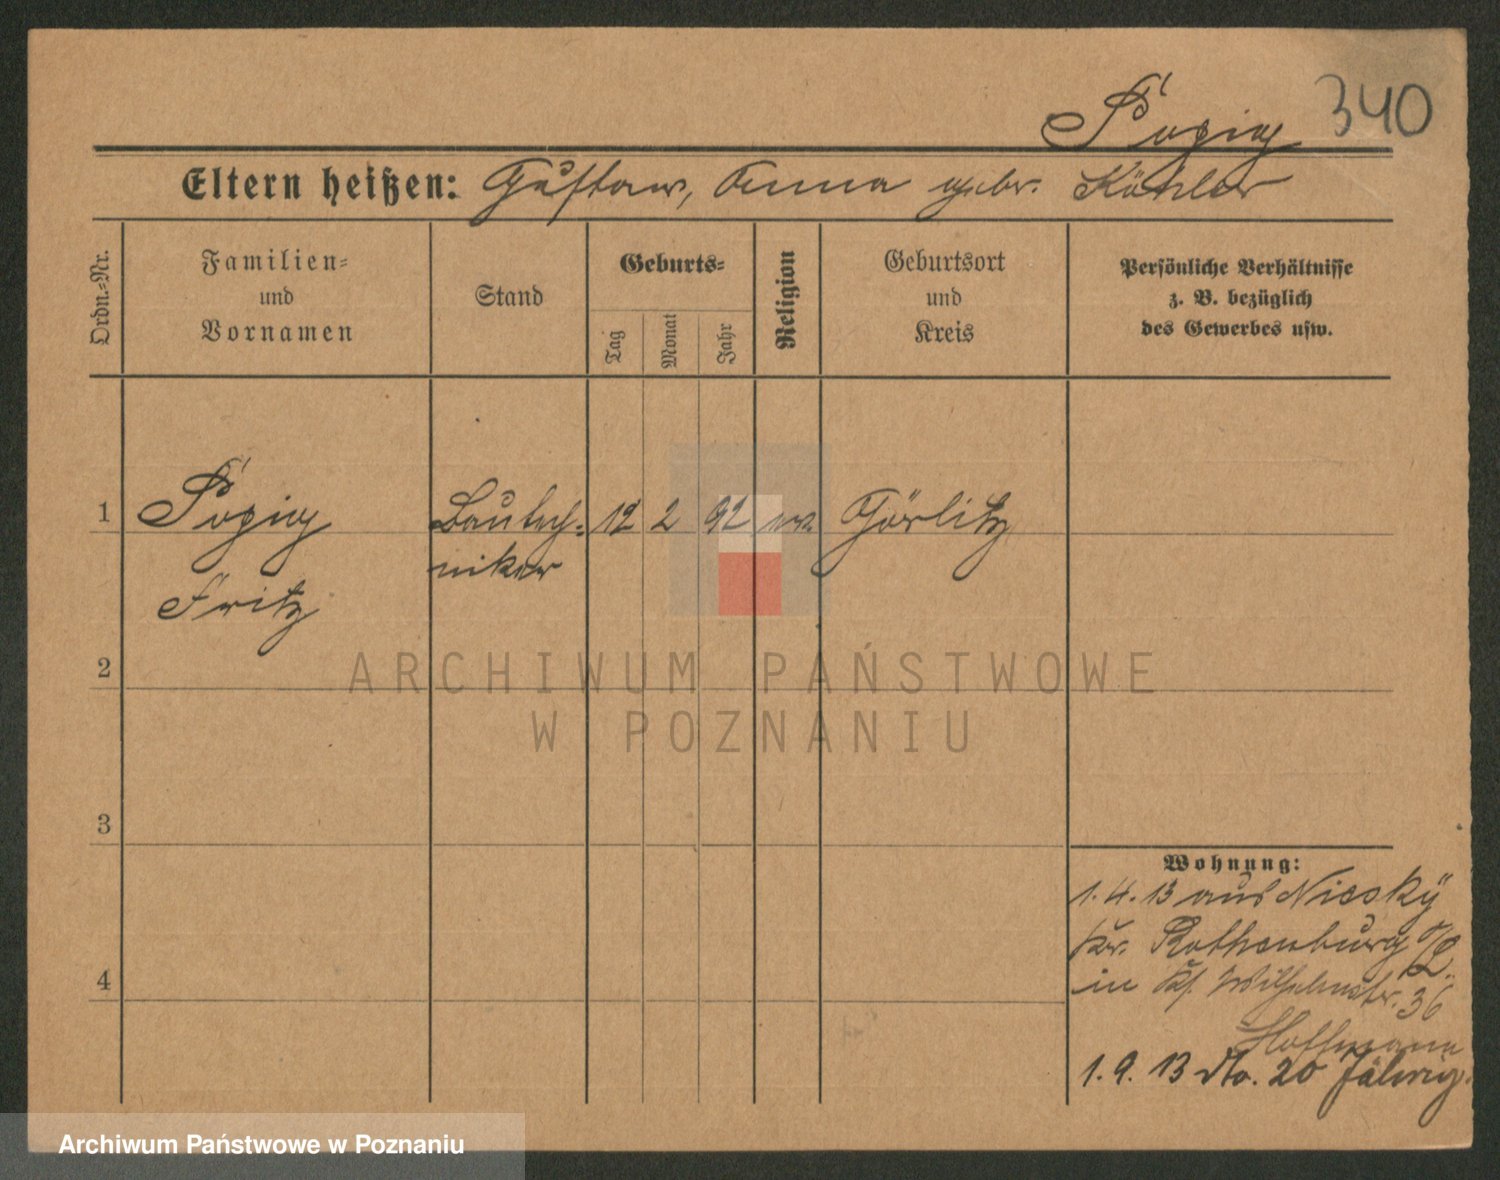 340
Eltern heißen: Gustav, Anna geb. Köhler
Ordn.-Nr.
Familien-
und
Vornamen
Stand
Geburts-
Tag
Monat
Jahr
Religion
Geburtsort
und
Kreis
Persönliche Verhältnisse
z. B. bezüglich
des Gewerbes usw.
1 Bautech- 12 2 92 ev. Görlitz
niker
Fritz
2
3
4
Wohnung:
1.4.13 aus Niesky
Kr. Rothenburg O/L.
in Wilhelmstr. 36
Hoffmann
1.9.13 dto. 20 Jähnig
ARCHIWUM PAŃSTWOWE
W POZNANIU
Archiwum Państwowe w Poznaniu